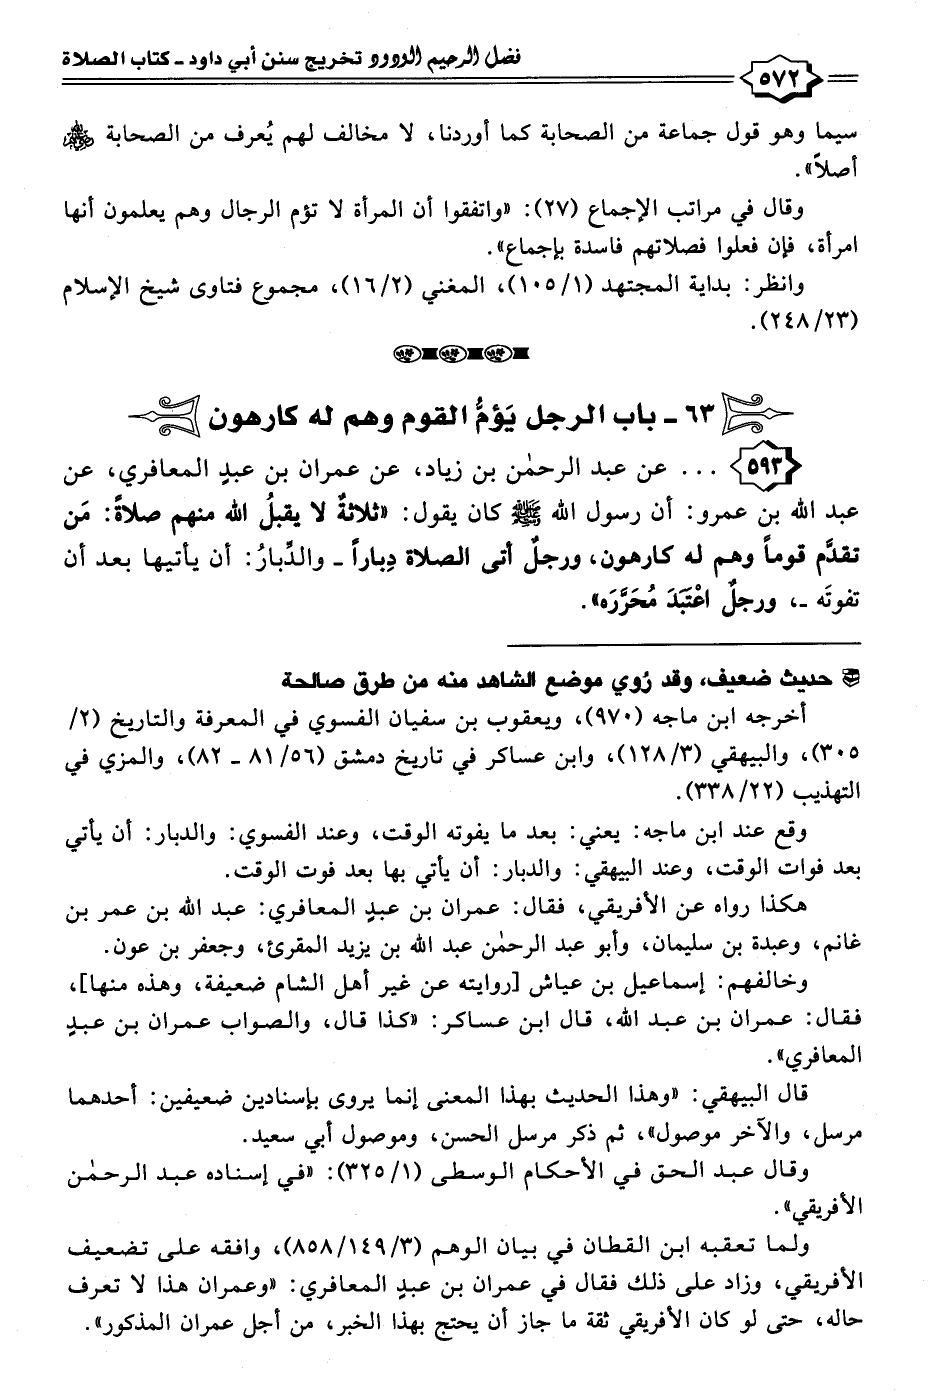 فضل الرحيم الودود تخريج سنن أبي داود - كتاب الصلاة
٥٧٢
سيما وهو قول جماعة من الصحابة كما أوردنا، لا مخالف لهم يُعرف من الصحابة ﷺ
أصلاً».
وقال في مراتب الإجماع (٢٧): «واتفقوا أن المرأة لا تؤم الرجال وهم يعلمون أنها
امرأة، فإن فعلوا فصلاتهم فاسدة بإجماع».
وانظر: بداية المجتهد (١/ ١٠٥)، المغني (١٦/٢)، مجموع فتاوى شيخ الإسلام
(٢٤٨/٢٣).
٦٣ - باب الرجل يَؤمُّ القوم وهم له كارهون
٥٩٣ ... عن عبد الرحمٰن بن زياد، عن عمران بن عبدٍ المعافري، عن
عبد الله بن عمرو: أن رسول الله ﷺ كان يقول: «ثلاثةٌ لا يقبلُ الله منهم صلاةً: مَن
تقدَّم قوماً وهم له كارهون، ورجلٌ أتى الصلاة دِباراً - والدِّبارُ: أن يأتيها بعد أن
تفوتَه -، ورجلٌ اعْتَبَدَ مُحَرَّرَه».
حديث ضعيف، وقد رُوي موضع الشاهد منه من طرق صالحة
أخرجه ابن ماجه (٩٧٠)، ويعقوب بن سفيان الفسوي في المعرفة والتاريخ (٢/
٣٠٥)، والبيهقي (١٢٨/٣)، وابن عساكر في تاريخ دمشق (٥٦/ ٨١ - ٨٢)، والمزي في
التهذيب (٣٣٨/٢٢).
وقع عند ابن ماجه: يعني: بعد ما يفوته الوقت، وعند الفسوي: والدبار: أن يأتي
بعد فوات الوقت، وعند البيهقي: والدبار: أن يأتي بها بعد فوت الوقت.
هكذا رواه عن الأفريقي، فقال: عمران بن عبدٍ المعافري: عبد الله بن عمر بن
غانم، وعبدة بن سليمان، وأبو عبد الرحمٰن عبد الله بن يزيد المقرئ، وجعفر بن عون.
وخالفهم: إسماعيل بن عياش [روايته عن غير أهل الشام ضعيفة، وهذه منها]،
فقال: عمران بن عبد الله، قال ابن عساكر: «كذا قال، والصواب عمران بن عبدٍ
المعافري».
قال البيهقي: «وهذا الحديث بهذا المعنى إنما يروى بإسنادين ضعيفين: أحدهما
مرسل، والآخر موصول»، ثم ذكر مرسل الحسن، وموصول أبي سعيد.
وقال عبد الحق في الأحكام الوسطى (٣٢٥/١): «في إسناده عبد الرحمٰن
الأفريقي».
ولما تعقبه ابن القطان في بيان الوهم (٨٥٨/١٤٩/٣)، وافقه على تضعيف
الأفريقي، وزاد على ذلك فقال في عمران بن عبدٍ المعافري: «وعمران هذا لا تعرف
حاله، حتى لو كان الأفريقي ثقة ما جاز أن يحتج بهذا الخبر، من أجل عمران المذكور».